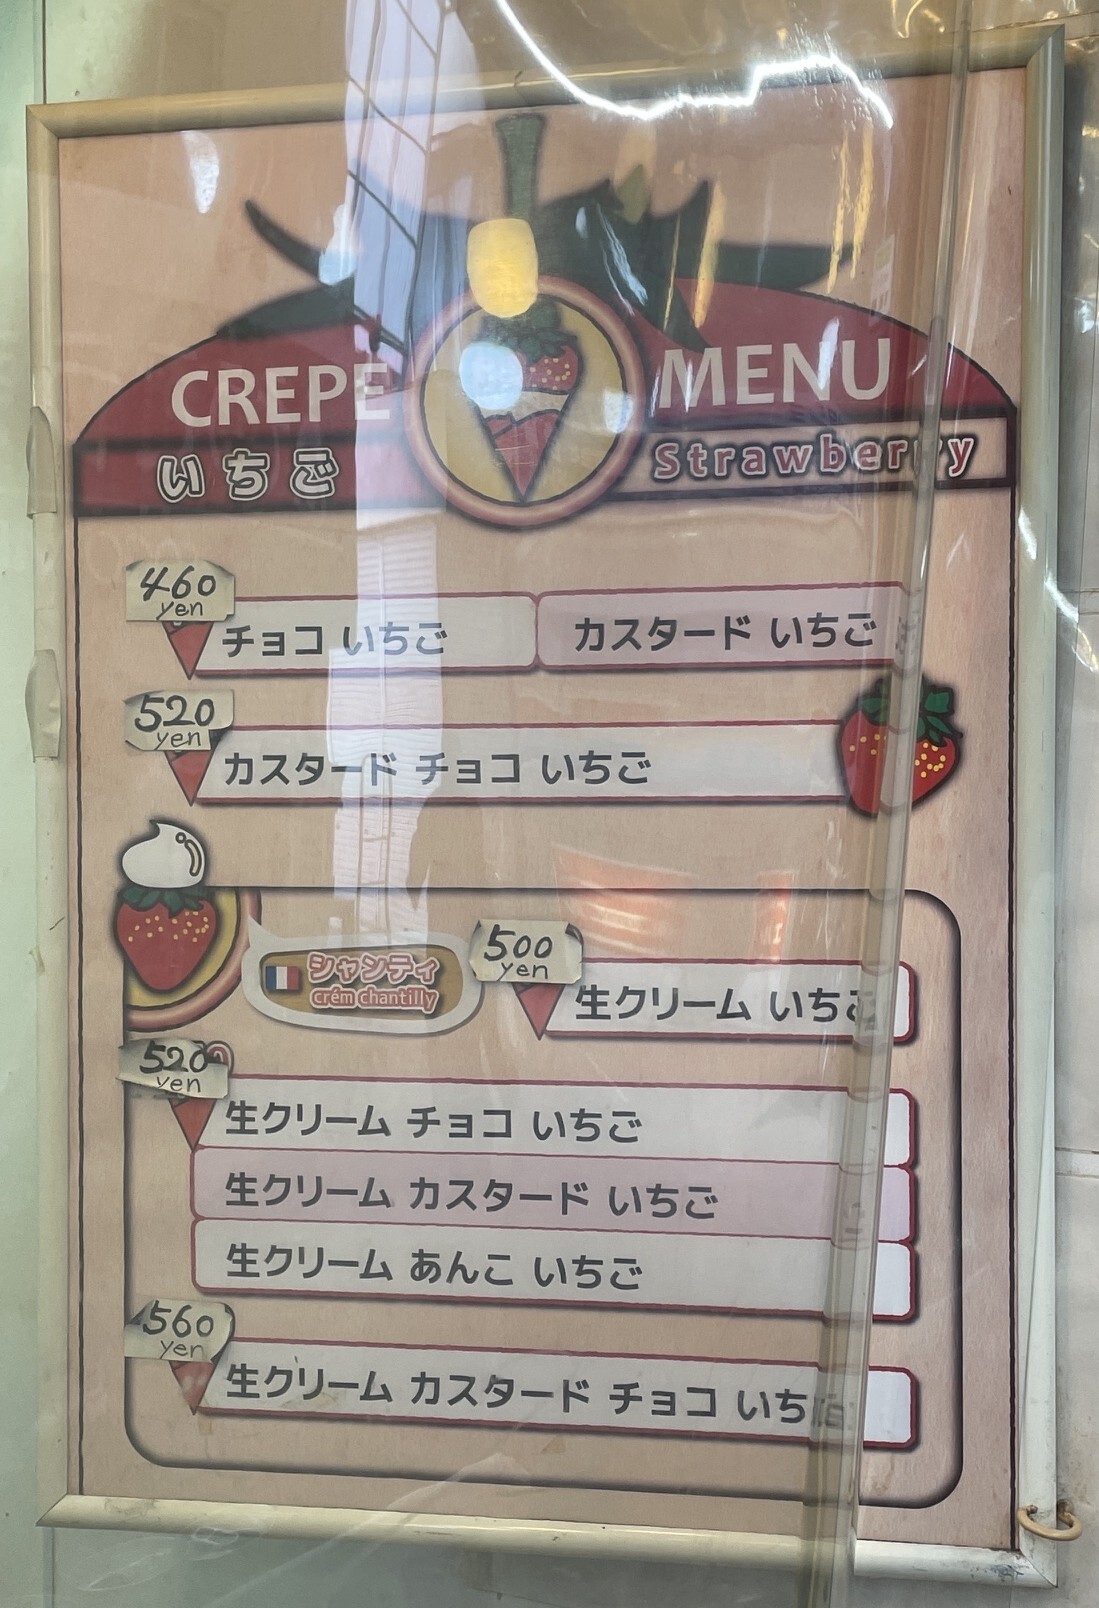 CREPE MENU
いちご Strawberry
460
yen
チョコ いちご カスタード いちご
520
yen
カスタード チョコ いちご
シャンティ
crém chantilly
500
yen
生クリーム いちご
520
yen
生クリーム チョコ いちご
生クリーム カスタード いちご
生クリーム あんこ いちご
560
yen
生クリーム カスタード チョコ いちご